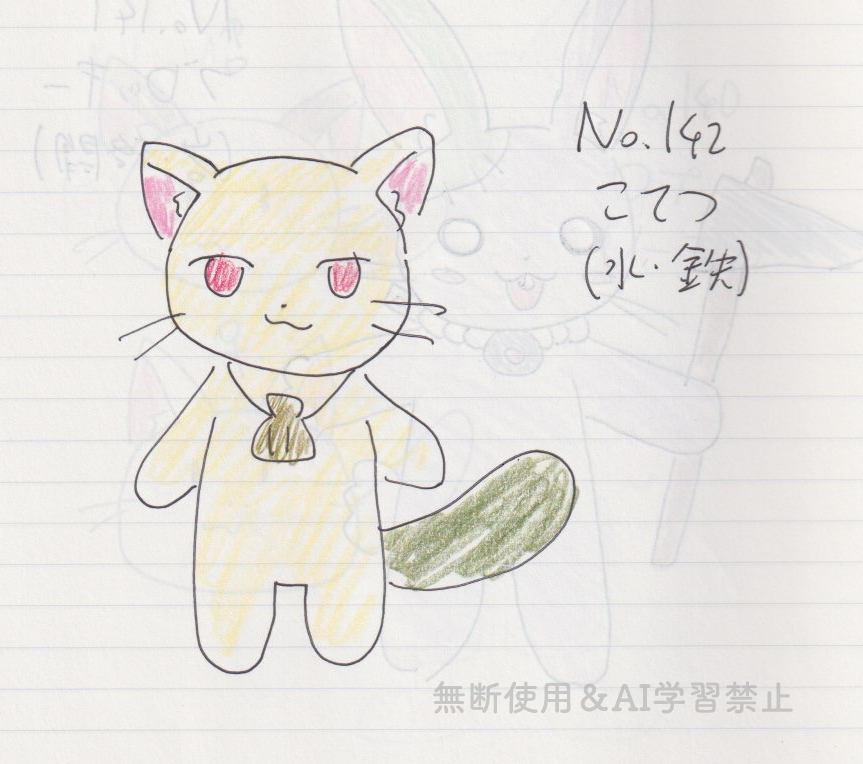 No.142
こてつ
(水・鉄)
無断使用&AI学習禁止